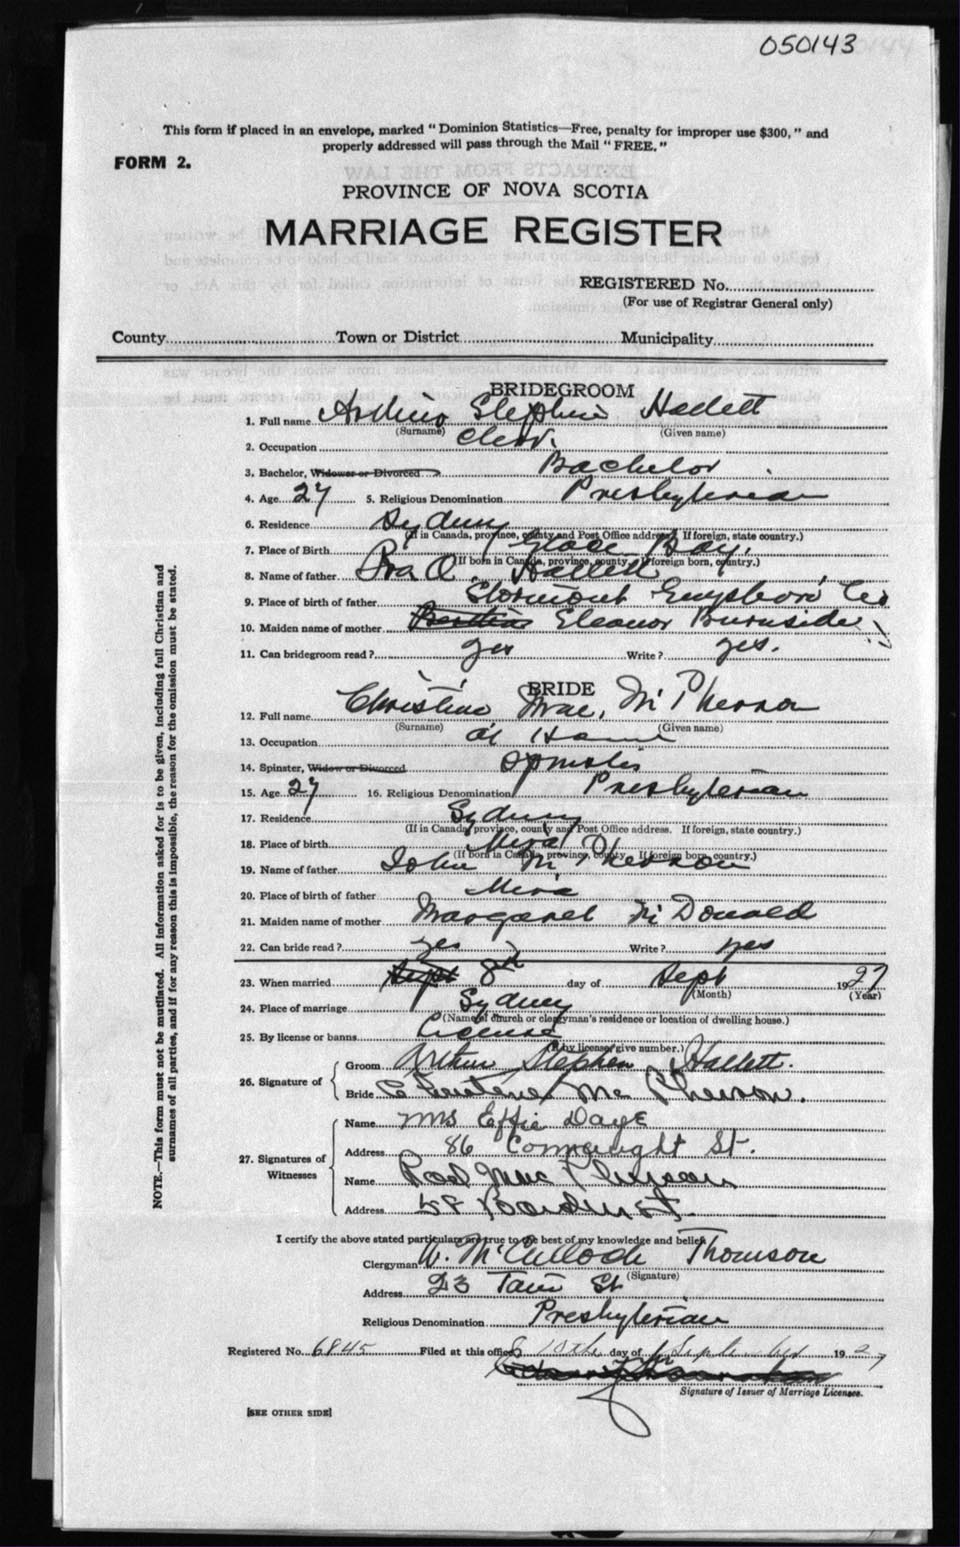 050143
This form if placed in an envelope, marked "Dominion Statistics—Free, penalty for improper use $300," and
properly addressed will pass through the Mail "FREE."
FORM 2.
PROVINCE OF NOVA SCOTIA
MARRIAGE REGISTER
REGISTERED No.
(For use of Registrar General only)
County Town or District Municipality
BRIDEGROOM
1. Full name Stephen Hallett
(Surname) (Given name)
2. Occupation
3. Bachelor, Widower or Divorced Bachelor
4. Age 27 5. Religious Denomination Presbyterian
6. Residence Sydney
(If in Canada, province, county and Post Office address. If foreign, state country.)
7. Place of Birth Glace Bay,
(If born in Canada, province, county. If foreign born, country.)
8. Name of father Hallett
9. Place of birth of father Stormont Guysboro Co
10. Maiden name of mother Eleanor Burnside
11. Can bridegroom read? yes Write? yes.
BRIDE
12. Full name Christine Mae, McPherson
(Surname) (Given name)
13. Occupation at Home
14. Spinster, Widow or Divorced
15. Age 27 16. Religious Denomination Presbyterian
17. Residence Sydney
(If in Canada, province, county and Post Office address. If foreign, state country.)
18. Place of birth Mira
(If born in Canada, province, county. If foreign born, country.)
19. Name of father John McPherson
20. Place of birth of father Mira
21. Maiden name of mother Margaret McDonald
22. Can bride read? yes Write? yes
23. When married Sept 8th day of Sept 1927
(Month) (Year)
24. Place of marriage Sydney
(Name of church or clergyman's residence or location of dwelling house.)
25. By license or banns License
(If by license, give number.)
26. Signature of
Groom Arthur Stephen Hallett.
Bride McPherson.
27. Signatures of Witnesses
Name Mrs Effie Daye
Address 86 Connaught St.
Name MacPherson
Address 58
I certify the above stated particulars are true to the best of my knowledge and belief.
Clergyman W. McCulloch Thomson
(Signature)
Address 23 St
Religious Denomination Presbyterian
Registered No. 6845 Filed at this office 10th day of September 1927
Signature of Issuer of Marriage Licenses.
[SEE OTHER SIDE]
NOTE.—This form must not be mutilated. All information asked for is to be given, including full Christian and
surnames of all parties, and if for any reason this is impossible, the reason for the omission must be stated.